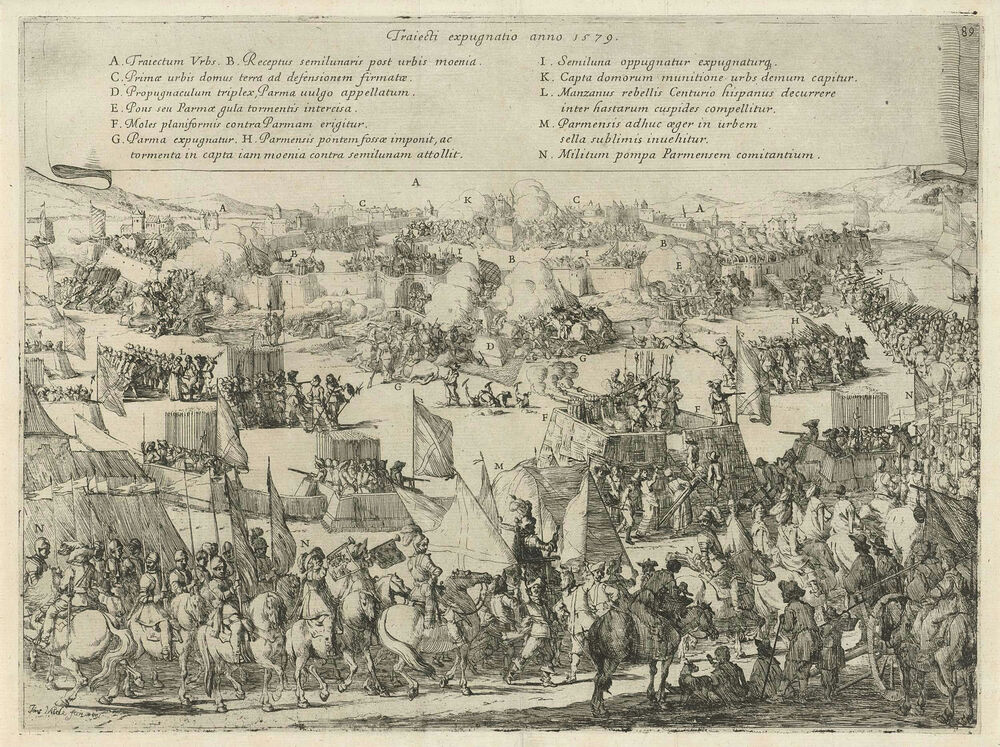 Traiecti expugnatio anno 1579.
89
A. Traiectum Vrbs. B. Receptus semilunaris post urbis moenia.
C. Primæ urbis domus terra ad defensionem firmatæ.
D. Propugnaculum triplex, Parma uulgo appellatum.
E. Pons seu Parmæ gula tormentis intercisa.
F. Moles planiformis contra Parmam erigitur.
G. Parma expugnatur. H. Parmensis pontem fossæ imponit, ac
tormenta in capta iam moenia contra semilunam attollit.
I. Semiluna oppugnatur expugnaturq.
K. Capta domorum munitione urbs demum capitur.
L. Manzanus rebellis Centurio hispanus decurrere
inter hastarum cuspides compellitur.
M. Parmensis adhuc æger in urbem
sella sublimis inuehitur.
N. Militum pompa Parmensem comitantium.
A
A C K C A
B I B I B E
N
D
I G G H
F F N
M
N N N